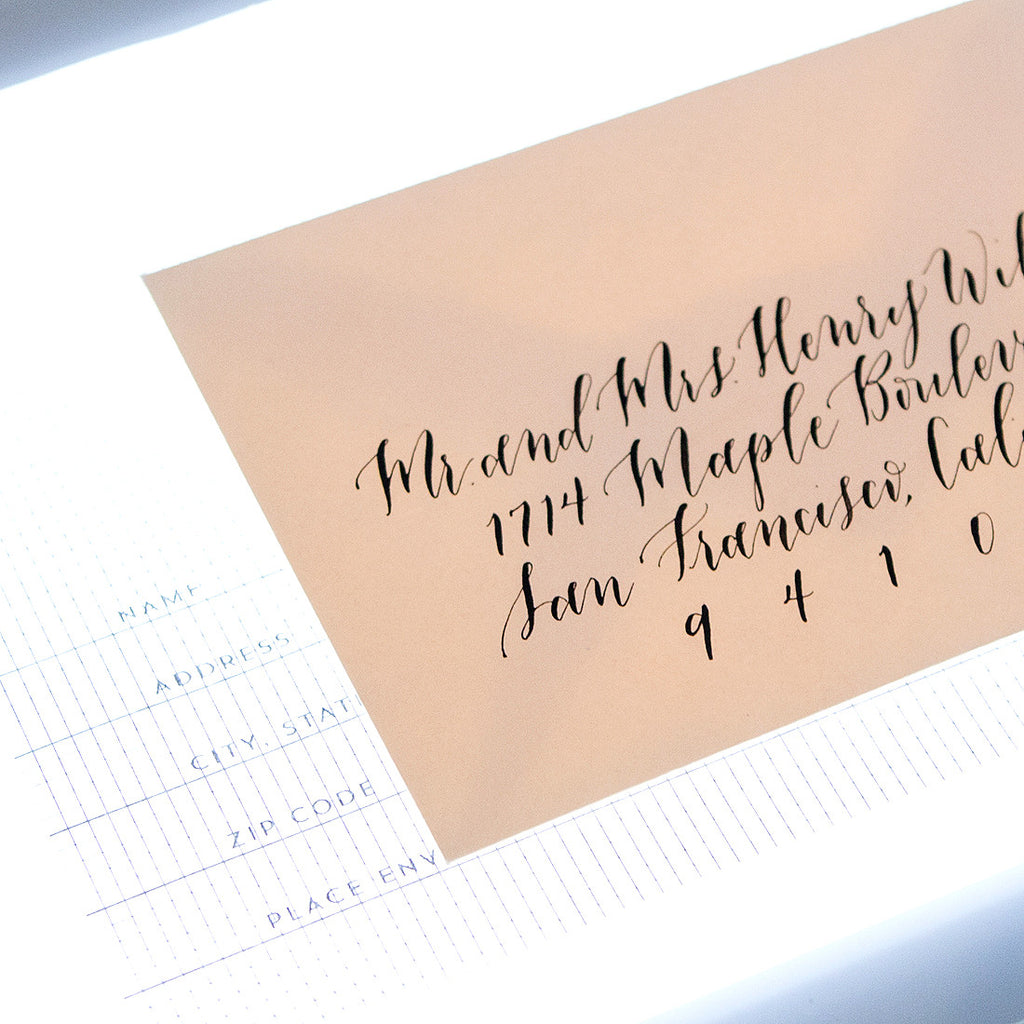 Mr. and Mrs. Henry Wil
1714 Maple Boulev
San Francisco, Cali
9 4 1 0
NAME
ADDRESS
CITY, STAT
ZIP CODE
PLACE ENV